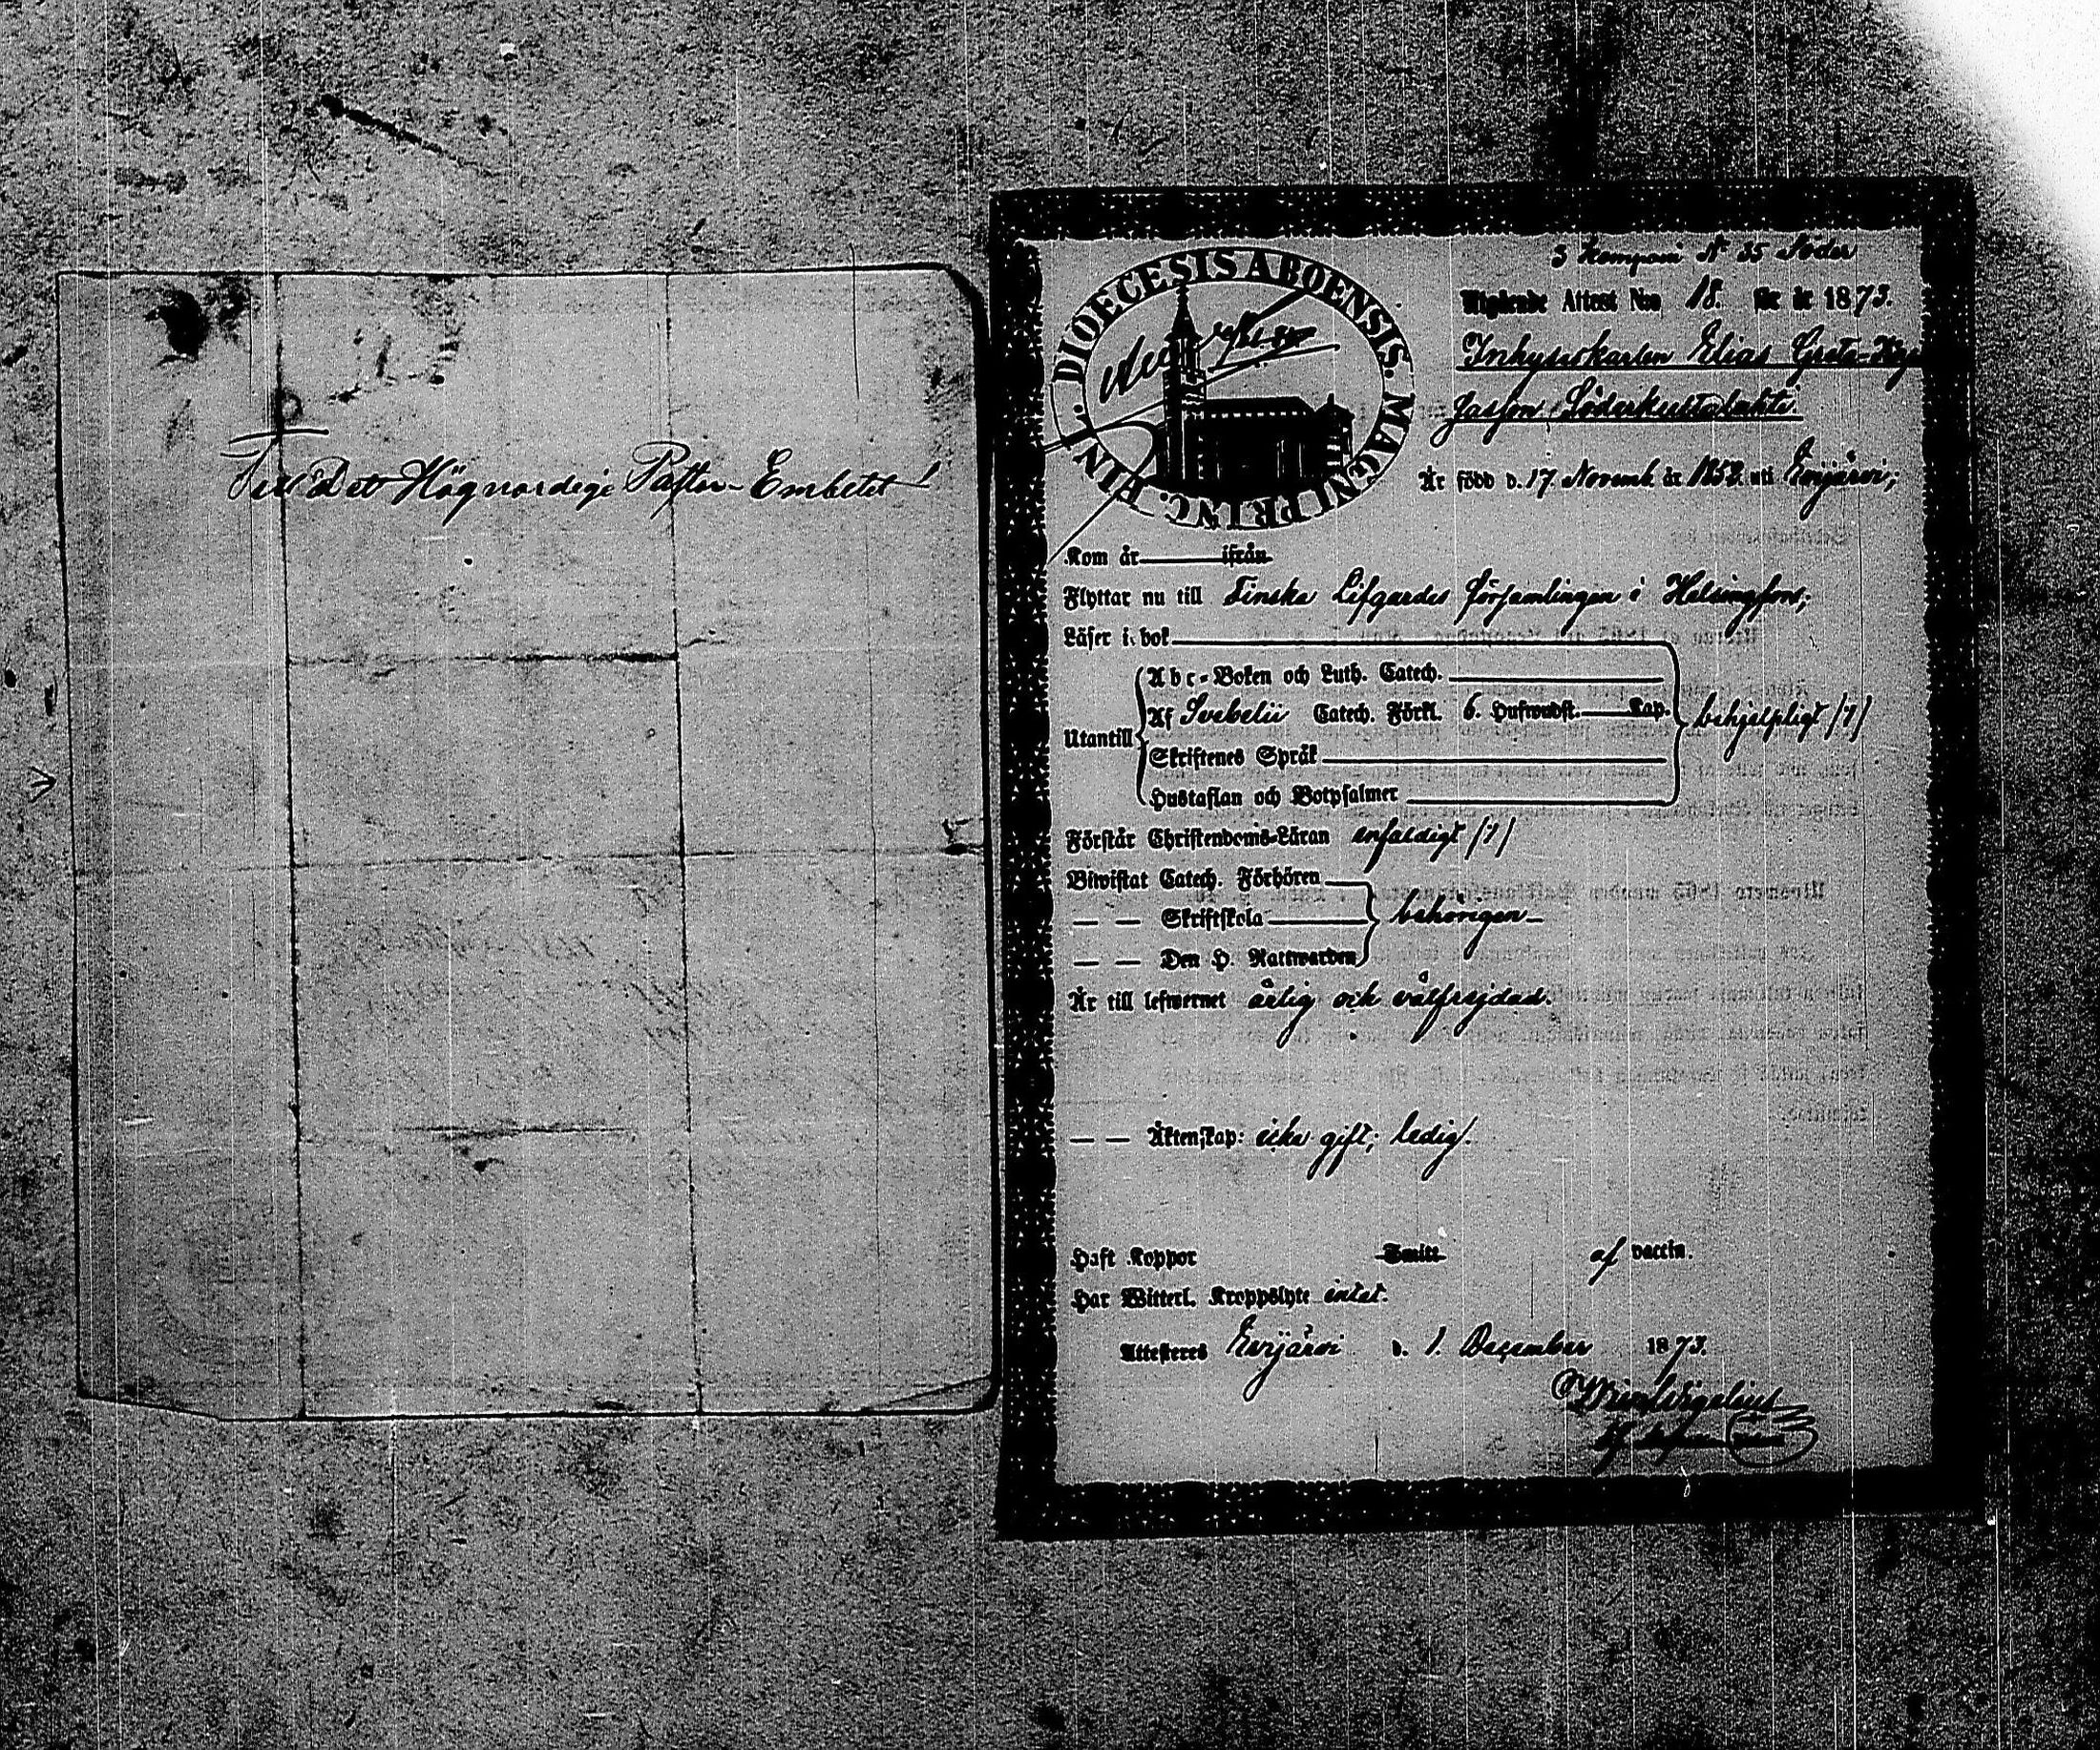 Till Dett Högvordige Pastor-Embetet!
DIOECESIS ABOENSIS. MAGNI PRINC. FINL.
3 Kompani N 35 Söder
Utgående Attest N:o 18. för år 1873.
Inhysiskarlen Elias Greta-
Jasson Söderkultalahti
Är född d. 17 Novemb. år 1852. uti Evijärvi;
Kom år ifrån
Flyttar nu till Finska Lifgardes församlingen i Helsingfors;
Läser i bok
Abc-Boken och Luth. Catech.
Utantill Af Svebelii Catech. Förkl. 6. Hufwudst. Kap. behjelpligt /1/
Skriftenes Språk
Hustaflan och Botpsalmer
Förstår Christendoms-Läran enfaldigt /1/
Biwistat Catech. Förhören
— — Skriftskola behörigen
— — Den H. Nattwarden
Är till lefwernet ärlig och välfrejdad.
— — Äktenskap: icke gift; ledig.
Haft Koppor Smitt af vaccin.
Har Witterl. Kroppslyte intet.
Attesteras Evijärvi d. 1. December 1873.